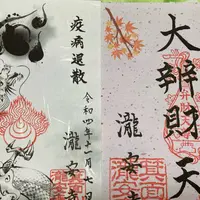 大辨財天
瀧安寺
疫病退散
令和四年十一月七
瀧安寺